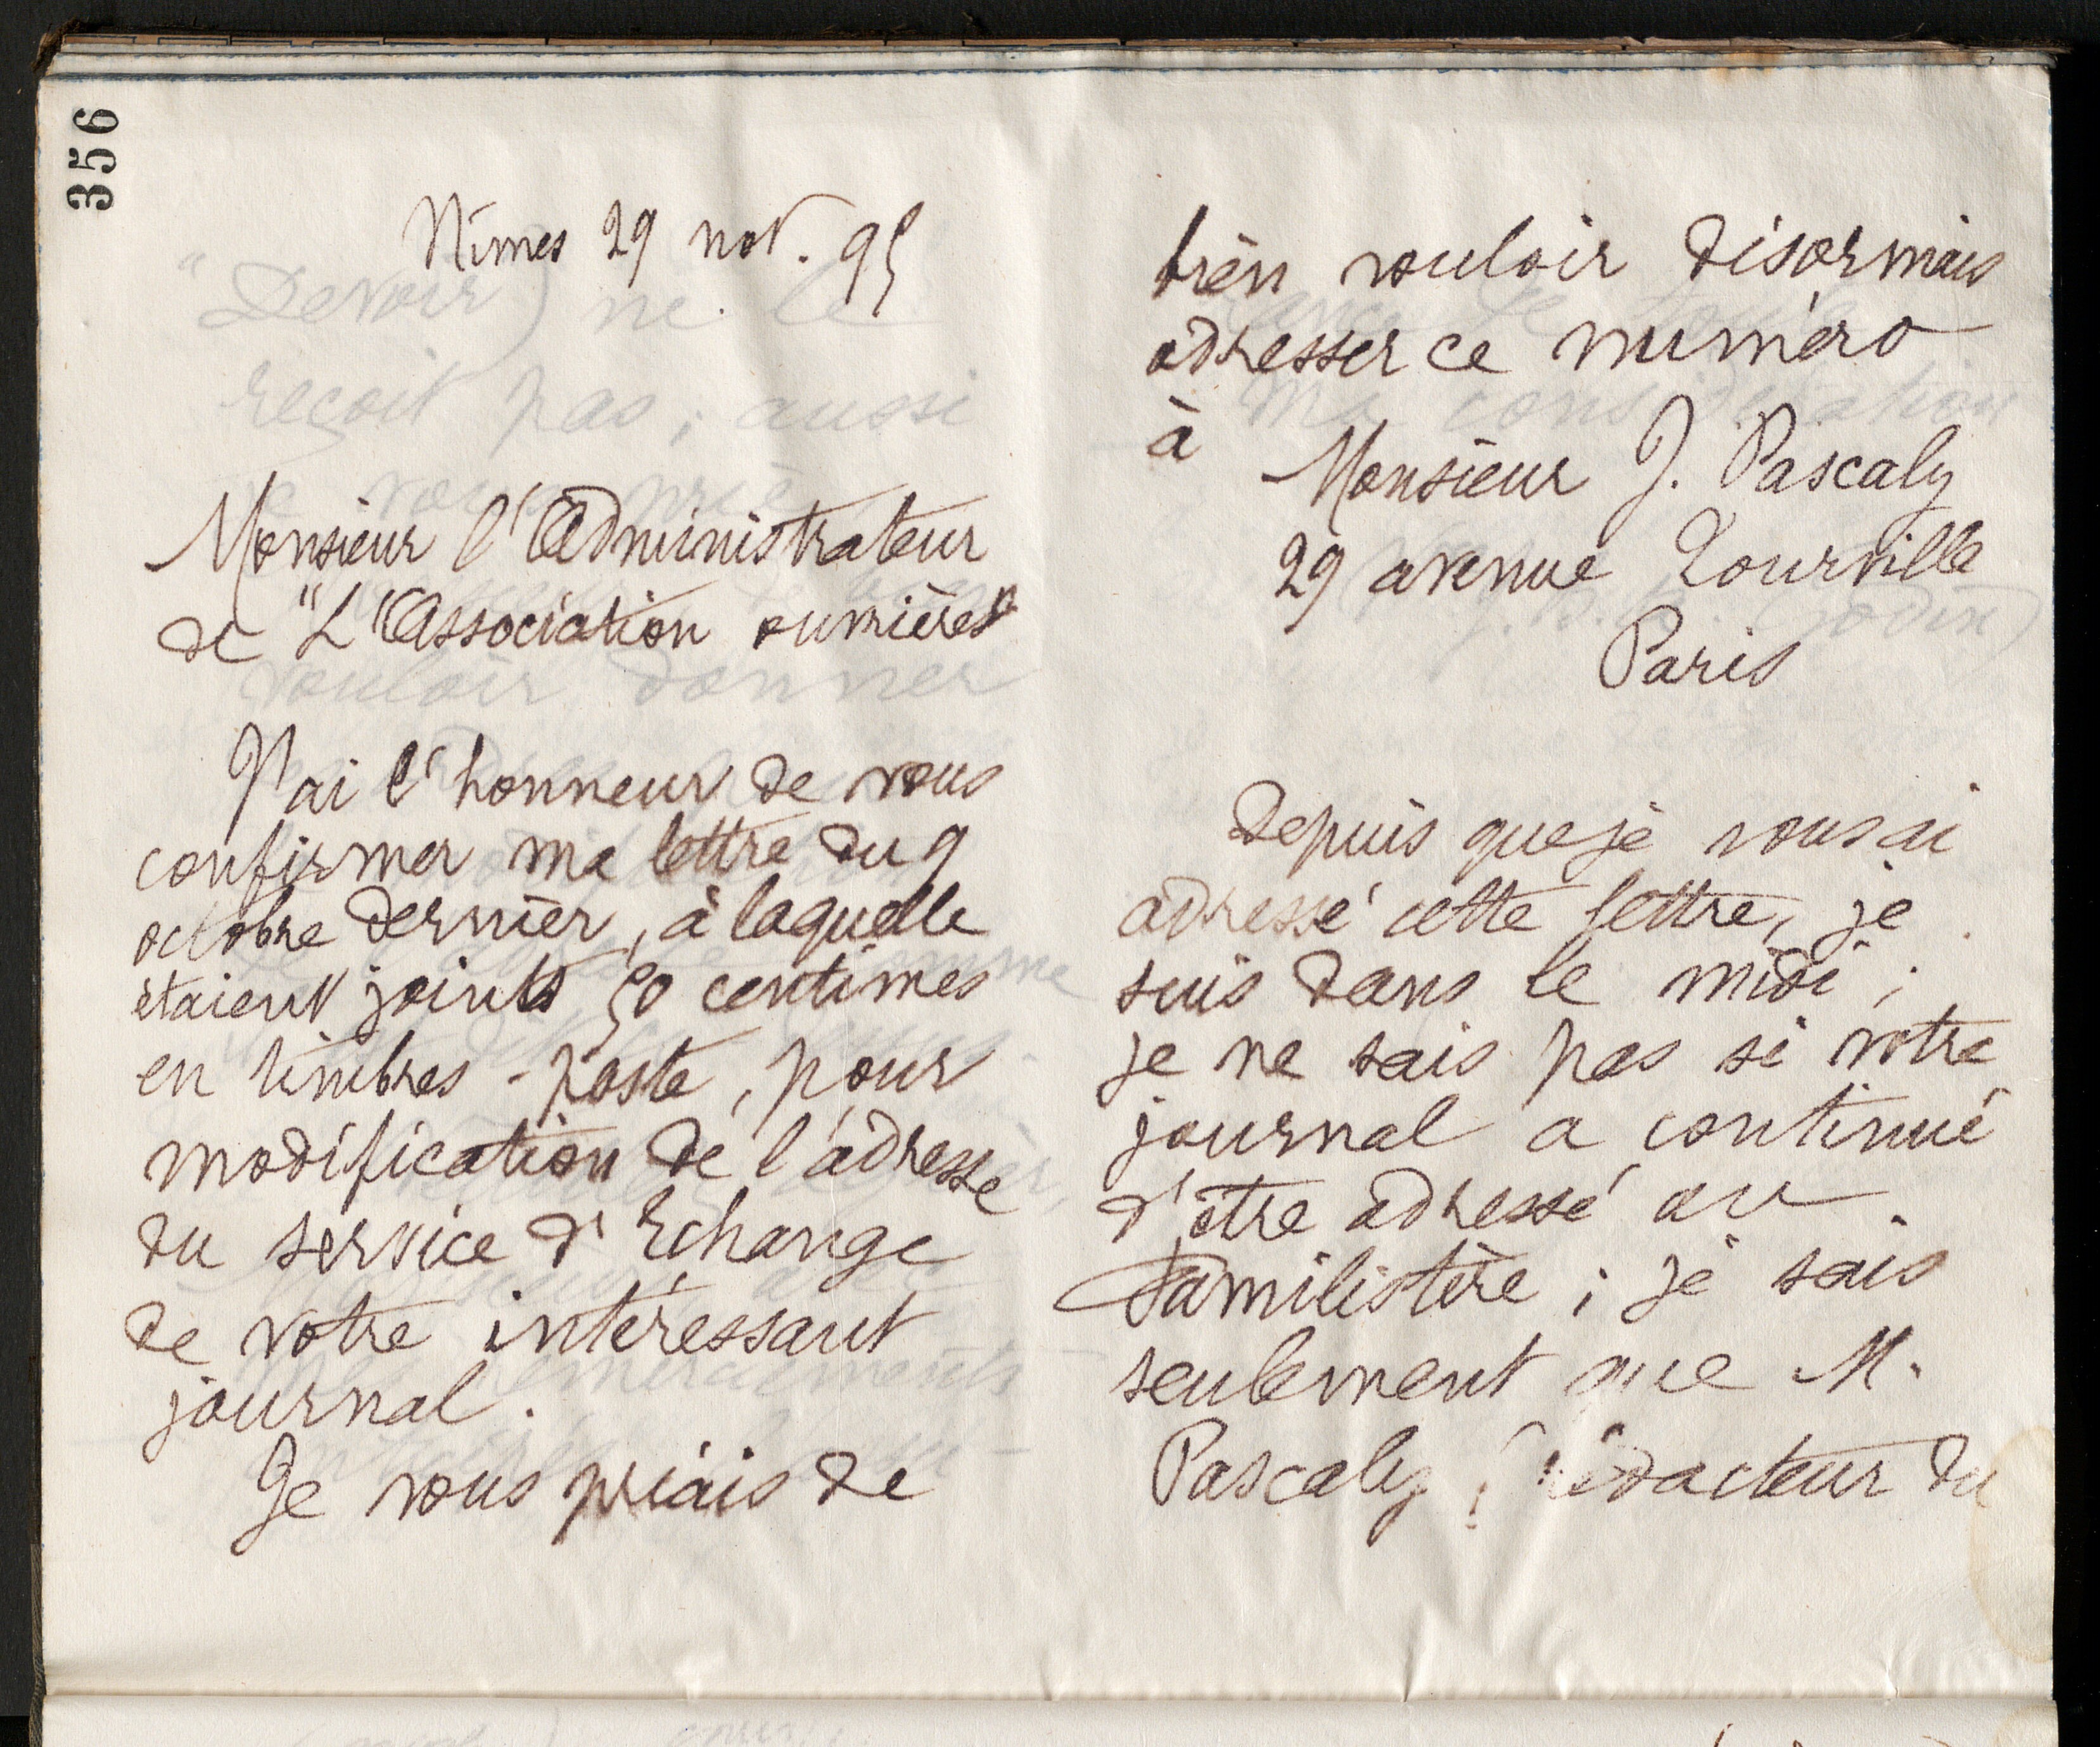 356
Nîmes 29 nov. 95
Monsieur l'Administrateur
de "L'Association ouvrière"
J'ai l'honneur de vous
confirmer ma lettre du 9
octobre dernier, à laquelle
étaient joints 50 centimes
en timbres-poste, pour
modification de l'adresse
du service d'Echange
de votre intéressant
journal.
Je vous priais de
bien vouloir désormais
adresser ce numéro
à
Monsieur J. Pascaly
29 avenue Tourville
Paris
Depuis que je vous ai
adressé cette lettre, je
suis dans le midi ;
je ne sais pas si votre
journal a continué
d'être adressé au
Familistère ; je sais
seulement que M.
Pascaly (rédacteur du